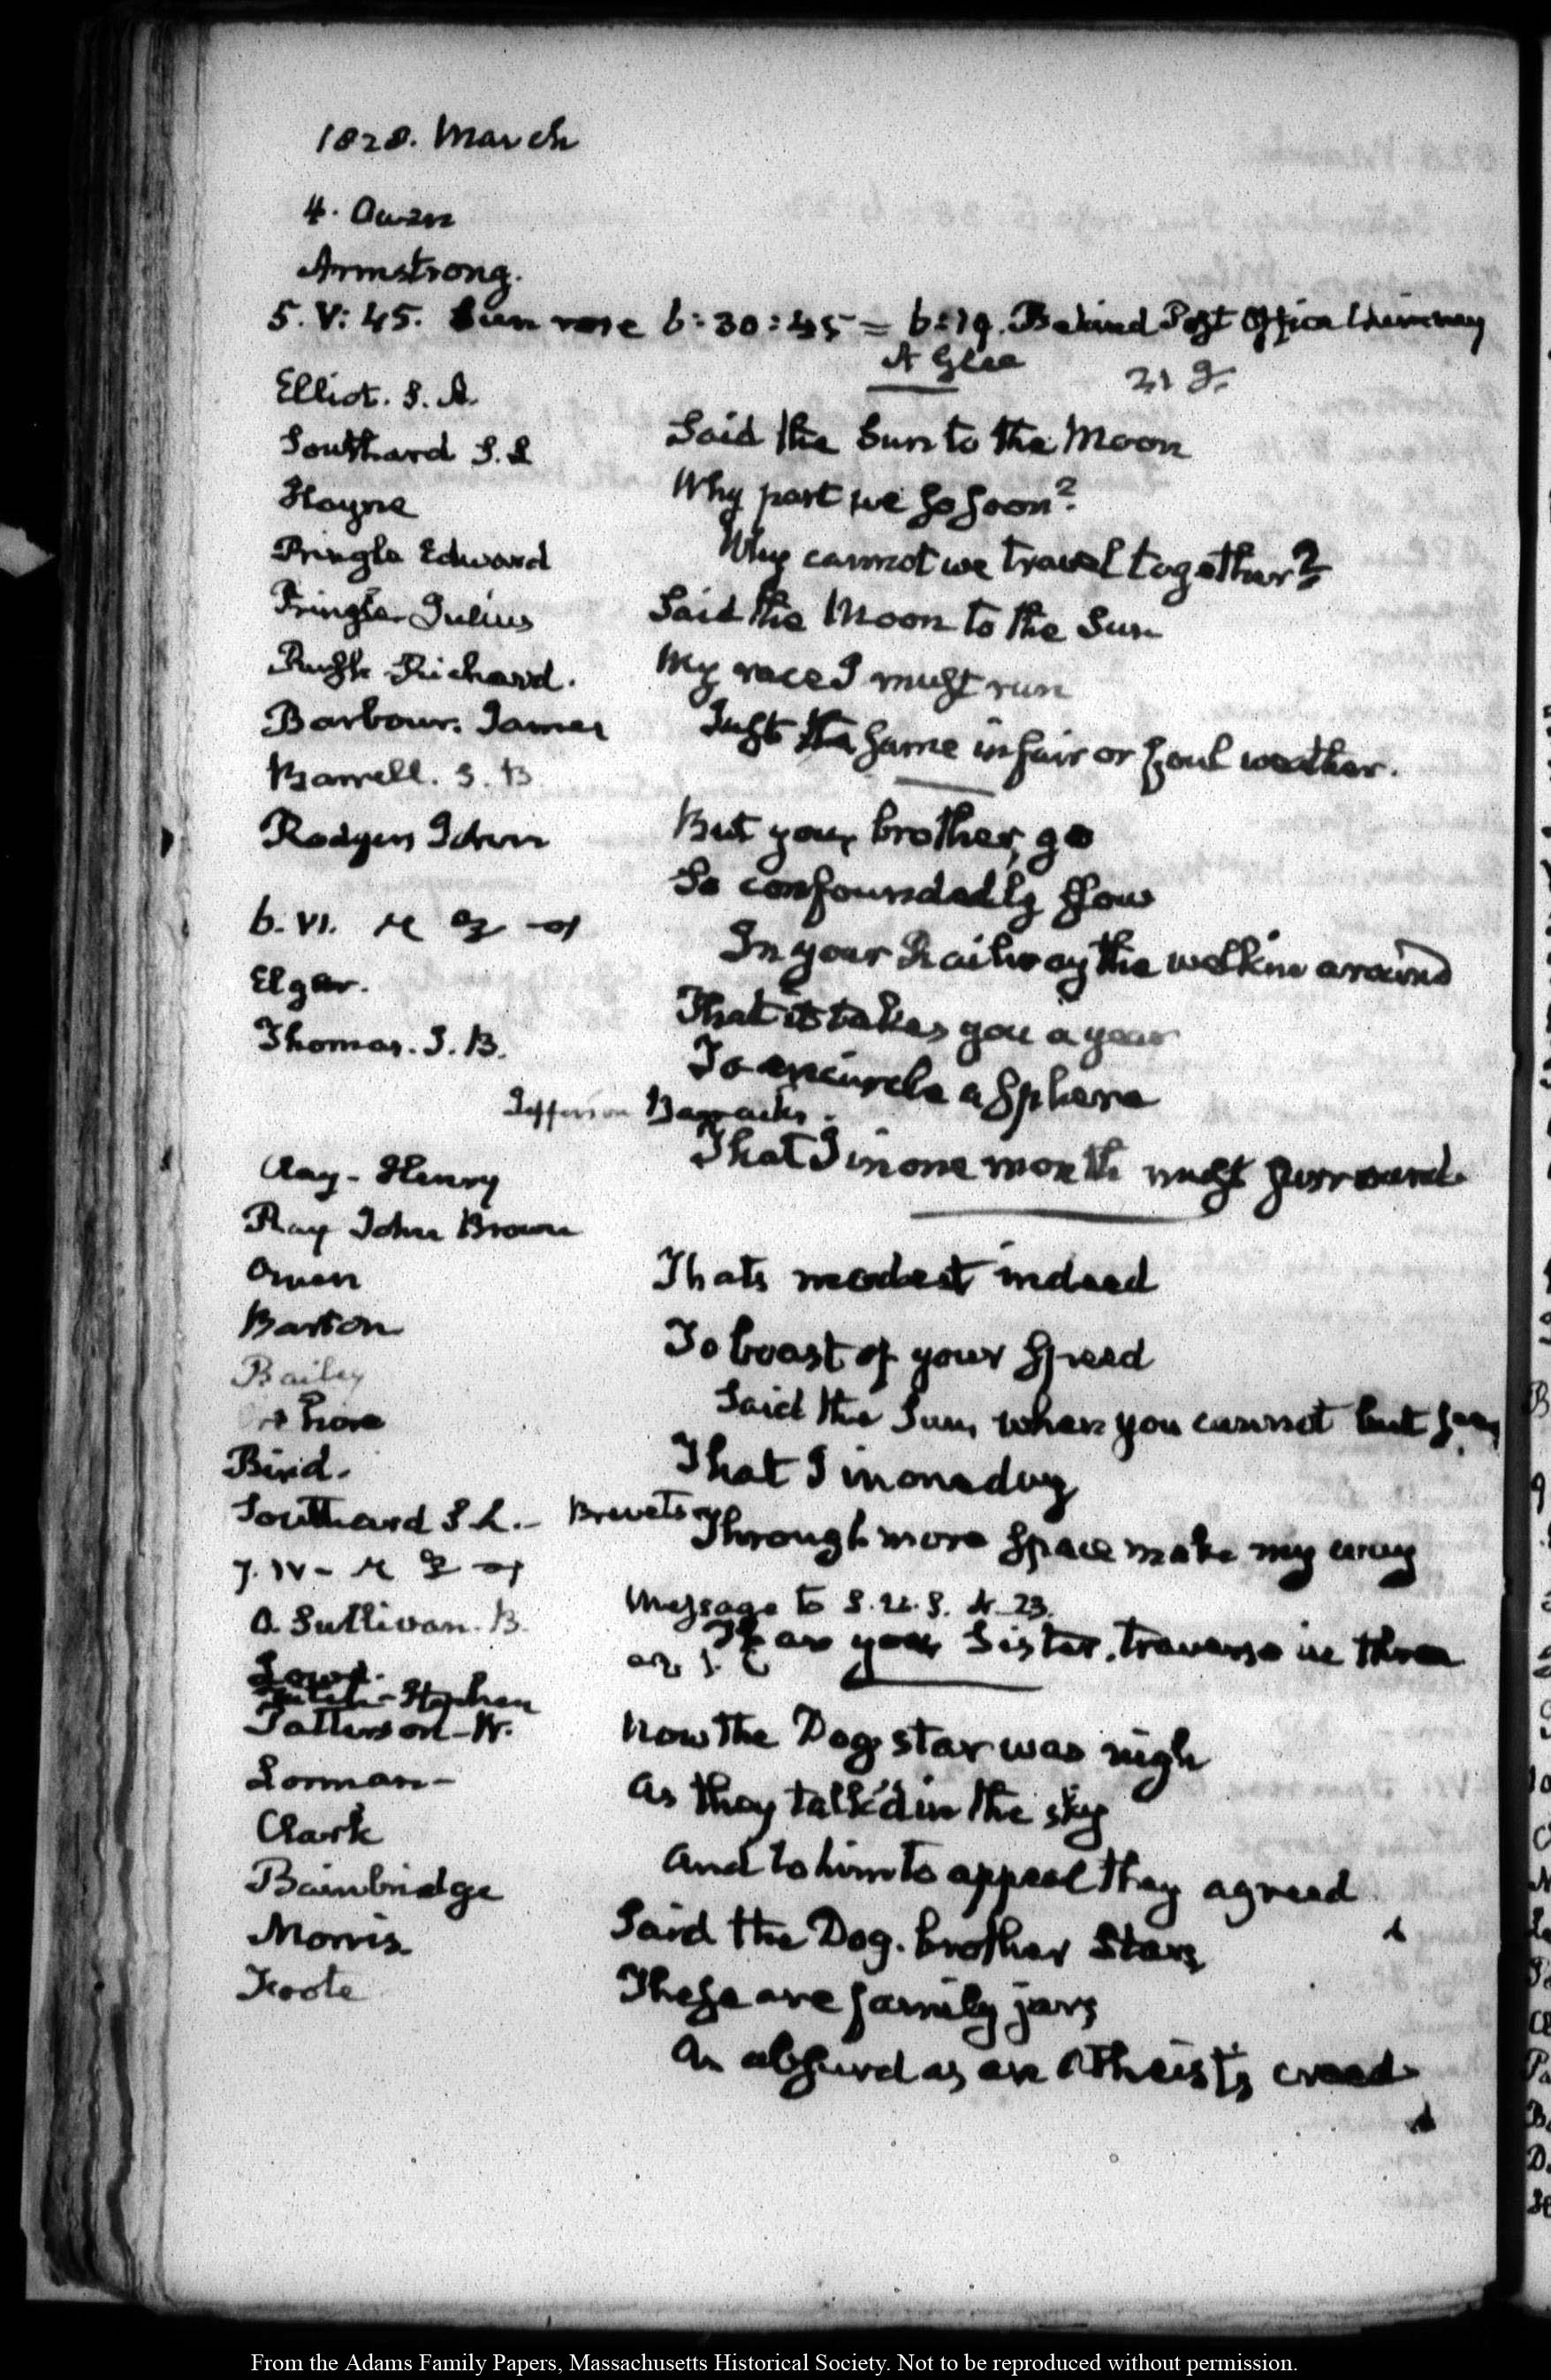 1828. March
4. Owen
Armstrong.
5. V: 45. Sun rose 6:30:45 = 6:19. Behind Post Office Chimney
A Glee
Elliot. S. A.
Southard S. L
Hayne
Pringle Edward
Pringle Julius
Rush Richard.
Barbour. James
Barrell. S. B
Rodgers John
6. VI.
Elgar.
Thomas. J. B.
Jefferson Barracks.
Clay - Henry
Ray John Brown
Owen
Barton
Bailey
Bird.
Southard S. L. - Brevets
7. IV -
O. Sullivan. B.
Patterson - W.
Lorman -
Clark
Bainbridge
Morris.
Foote
Said the Sun to the Moon
Why part we so soon?
Why cannot we travel together?
Said the Moon to the Sun
My race I must run
Just the same in fair or foul weather.
But you, brother, go
So confoundedly slow
In your Railway the welkin around
That it takes you a year
To encircle a Sphere
That I in one month must surround.
Thats modest indeed
To boast of your speed
Said the Sun, when you cannot but
That I in one day
Through more space make my way
Message to S. U. S. N. 23.
Than you Sister, traverse in three
Now the Dog star was nigh
As they talk'd in the sky
And to him to appeal they agreed
Said the Dog. brother Stars,
These are family jars
As absurd as an Atheist's creed.